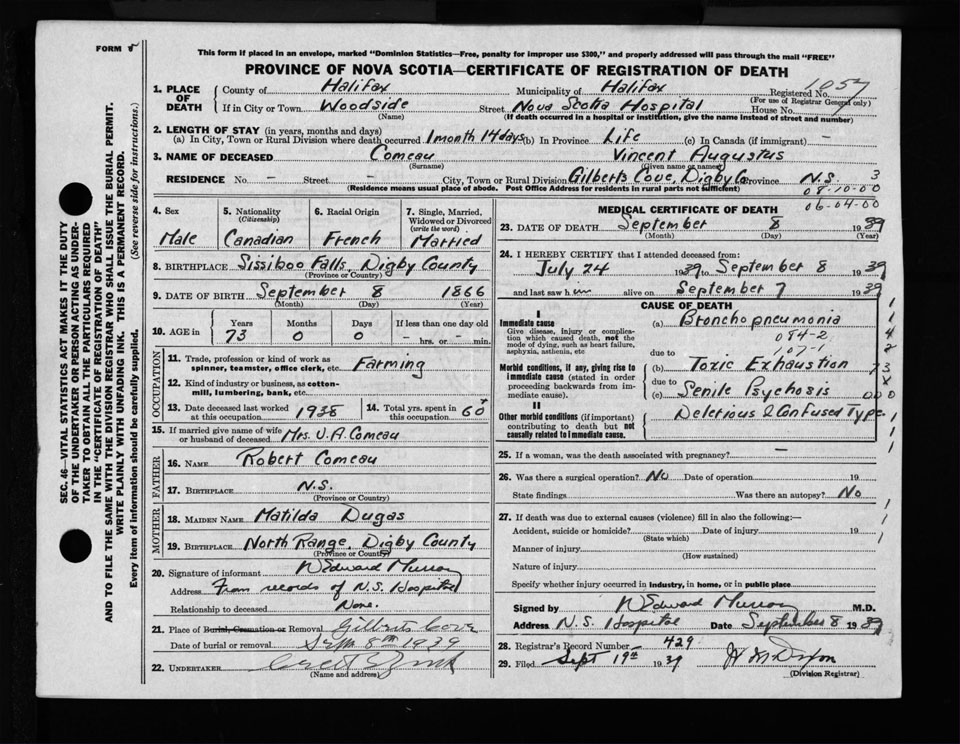 FORM 5
This form if placed in an envelope, marked "Dominion Statistics—Free, penalty for improper use $300," and properly addressed will pass through the mail "FREE"
PROVINCE OF NOVA SCOTIA—CERTIFICATE OF REGISTRATION OF DEATH
1. PLACE OF DEATH
County of Halifax Municipality of Halifax Registered No. 1057
(For use of Registrar General only)
If in City or Town Woodside Street Nova Scotia Hospital House No.
(Name) (If death occurred in a hospital or institution, give the name instead of street and number)
2. LENGTH OF STAY (in years, months and days)
(a) In City, Town or Rural Division where death occurred 1 month 14 days (b) In Province Life (c) In Canada (if immigrant) –
3. NAME OF DECEASED Comeau Vincent Augustus
(Surname) (Given name or names)
RESIDENCE No. – Street – City, Town or Rural Division Gilberts Cove, Digby Co Province N.S. 3
(Residence means usual place of abode. Post Office Address for residents in rural parts not sufficient) 08-10-00
06-04-00
4. Sex 5. Nationality (Citizenship) 6. Racial Origin 7. Single, Married, Widowed or Divorced (write the word)
Male Canadian French Married
8. BIRTHPLACE Sissiboo Falls, Digby County
(Province or Country)
9. DATE OF BIRTH September 8 1866
(Month) (Day) (Year)
10. AGE in Years Months Days If less than one day old
73 0 0 – hrs. or – min.
OCCUPATION
11. Trade, profession or kind of work as spinner, teamster, office clerk, etc. Farming
12. Kind of industry or business, as cotton-mill, lumbering, bank, etc.
13. Date deceased last worked at this occupation 1938 14. Total yrs. spent in this occupation 60+
15. If married give name of wife or husband of deceased Mrs. V. A. Comeau
FATHER
16. NAME Robert Comeau
17. BIRTHPLACE N.S.
(Province or Country)
MOTHER
18. MAIDEN NAME Matilda Dugas
19. BIRTHPLACE North Range, Digby County
(Province or Country)
20. Signature of informant W Edward Murray
Address From records of N.S. Hospital
Relationship to deceased None.
21. Place of Burial, Cremation or Removal Gilberts Cove
Date of burial or removal Sept 8th 1939
22. UNDERTAKER
(Name and address)
MEDICAL CERTIFICATE OF DEATH
23. DATE OF DEATH September 8 1939
(Month) (Day) (Year)
24. I HEREBY CERTIFY that I attended deceased from:
July 24 1939 to September 8 1939
and last saw him alive on September 7 1939
CAUSE OF DEATH
I
Immediate cause
Give disease, injury or complication which caused death, not the mode of dying, such as heart failure, asphyxia, asthenia, etc
(a) Broncho pneumonia
084-2
107-1
due to
Morbid conditions, if any, giving rise to immediate cause (stated in order proceeding backwards from immediate cause).
(b) Toxic Exhaustion
due to
(c) Senile Psychosis
II
Other morbid conditions (if important) contributing to death but not causally related to immediate cause.
Delerious & Confused Type.
25. If a woman, was the death associated with pregnancy? –
26. Was there a surgical operation? No Date of operation 19
State findings Was there an autopsy? No
27. If death was due to external causes (violence) fill in also the following:—
Accident, suicide or homicide? Date of injury 19
(State which)
Manner of injury
(How sustained)
Nature of injury
Specify whether injury occurred in industry, in home, or in public place
Signed by W Edward Murray M.D.
Address N.S. Hospital Date September 8 1939
28. Registrar's Record Number 429
29. Filed Sept 19th 1939
(Division Registrar)
SEC. 46—VITAL STATISTICS ACT MAKES IT THE DUTY
OF THE UNDERTAKER OR PERSON ACTING AS UNDER-
TAKER TO OBTAIN ALL THE PARTICULARS REQUIRED
IN THE "CERTIFICATE OF REGISTRATION OF DEATH"
AND TO FILE THE SAME WITH THE DIVISION REGISTRAR WHO SHALL ISSUE THE BURIAL PERMIT.
WRITE PLAINLY WITH UNFADING INK. THIS IS A PERMANENT RECORD.
Every item of information should be carefully supplied. (See reverse side for instructions.)